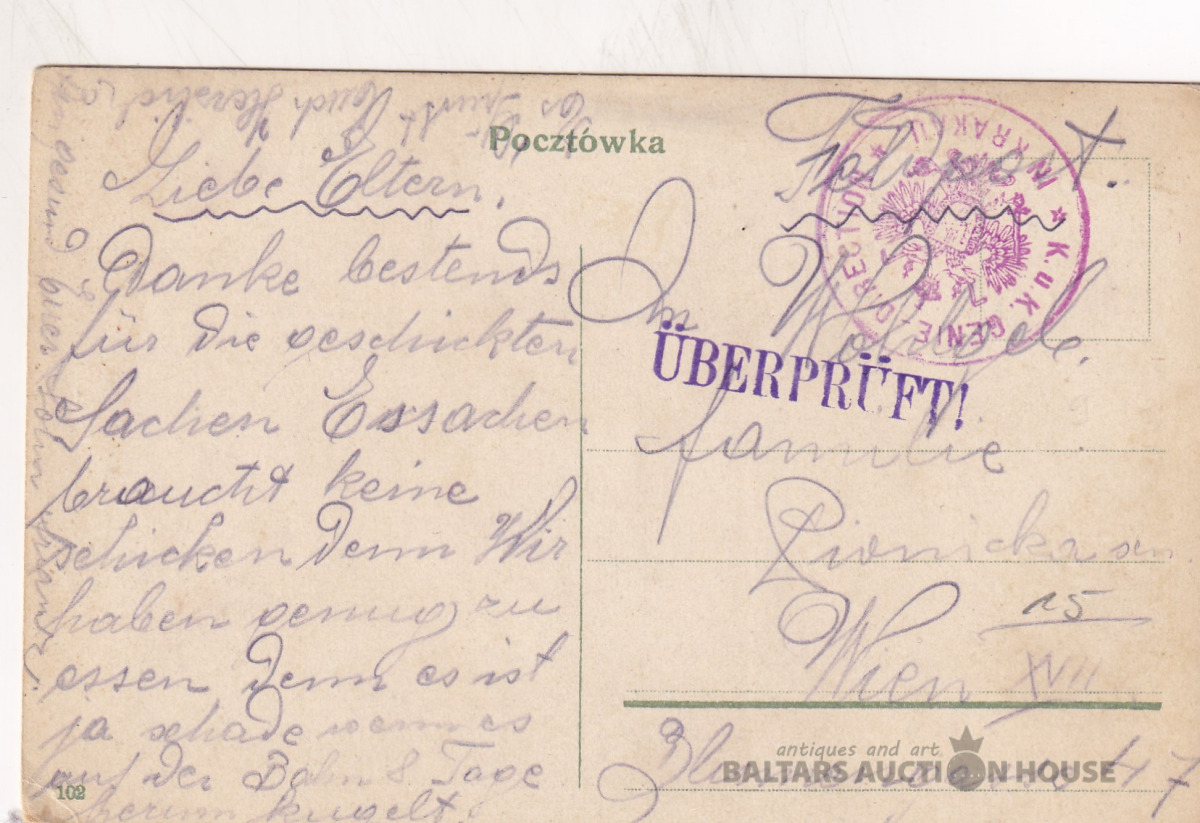 Pocztówka
Liebe Eltern.
Danke bestends
für die geschickten
Sachen Essachen
braucht keine
schicken denn Wir
haben genug zu
essen denn es ist
ja schade wenn es
auf der Bahn 8 Tage
herum kugelt.
gesund euer Sohn Franz.
Es Grüsst
euch Herzlich
102
Feldpost.
An
W.
Familie
Wien XVII
15
47
ÜBERPRÜFT!
K.u.K. GENIE-DIRECTION ★ IN KRAKAU ★
antiques and art
BALTARS AUCTION HOUSE